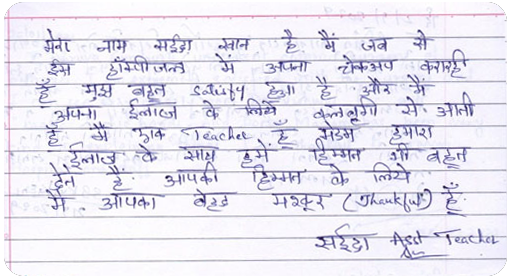 मेरा नाम सईदा खान है. मैं जब से
इस हॉस्पीजल में अपना चेकअप करारही
हूँ मुझे बहुत satisfy हुआ है और मैं
अपना ईलाज के लिये बल्लूगी से आती
हूँ मैं एक Teacher हूँ मेडम हमारा
ईलाज के साथ हमें हिम्मत भी बहुत
देते हैं. आपकी हिम्मत के लिये
मैं आपका बेहद मश्कूर (Thankful) हूँ.
सईदा Asst Teacher